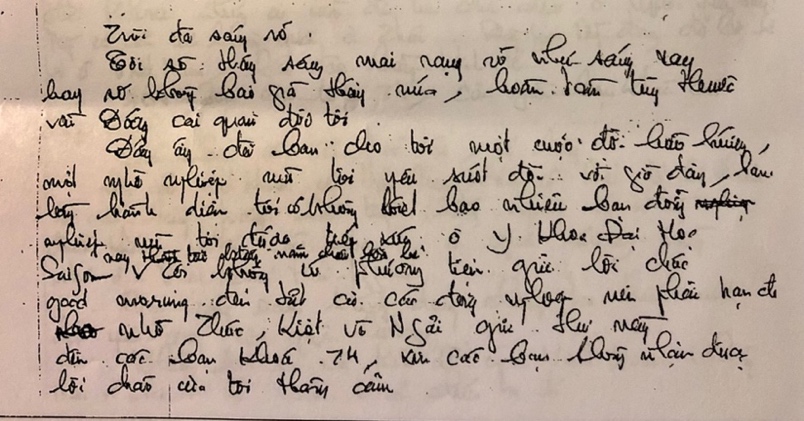 Trời đã sáng rõ.
Tôi sẽ thấy sáng mai rạng rỡ như sáng nay
hay sẽ không bao giờ thấy nữa, hoàn toàn tùy thuộc
vào Đấng cai quản đời tôi
Đấng ấy đã ban cho tôi một cuộc đời hào hùng,
một nghề nghiệp mà tôi yêu suốt đời và giờ đây,
lòng hãnh diện tôi có không biết bao nhiêu bạn đồng
nghiệp mà tôi đã tiếp xúc ở Y Khoa Đại Học
Saigon tôi không phương tiện gửi lời chào
good morning đến tất cả các đồng nghiệp nên phải
nhờ Thức, Kiệt và Ngãi gửi thư này
đến các bạn khoá 74, xin các bạn nhận được
lời chào của tôi